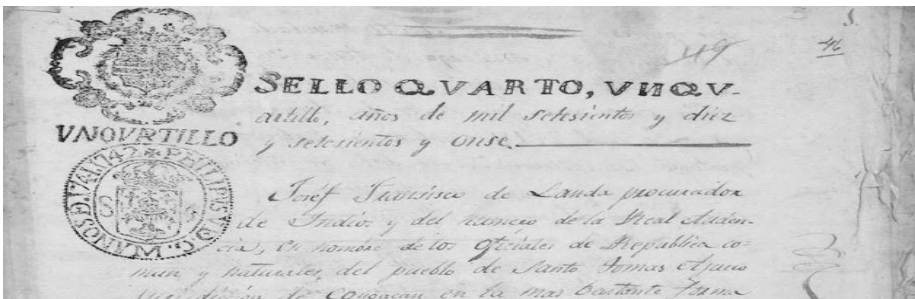 49
46
SELLO QUARTO, VNQV-
VNQVRTILLO
artillo, años de mil setesientos y diez
y setesientos y onse.
Josef Fransisco de Landa procurador
de Indios y del numero de la Real Auden-
cia, en nombre de los Oficiales de Republica co-
mun y naturales del pueblo de Santo Tomas Ajusco
Jurisdicion de Cougacan en la mas bastante forma